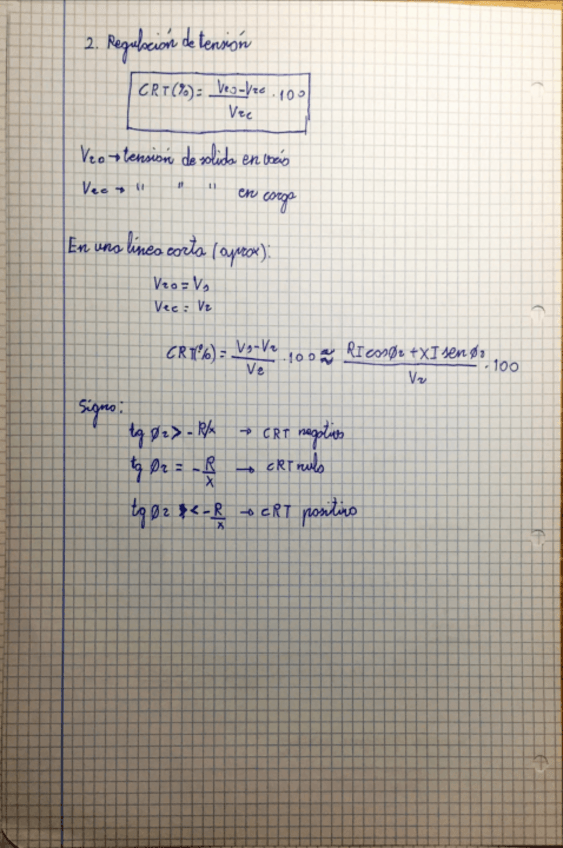 2. Regulación de tensión
CRT(%) = (V20-V2c)/V2c · 100
V20 → tensión de salida en vacío
V2c → " " " en carga
En una línea corta (aprox):
V20 = V1
V2c = V2
CRT(%) = (V1-V2)/V2 · 100 ≈ (RI cosφ2 + XI senφ2)/V2 · 100
Signo:
tg φ2 > -R/x → CRT negativo
tg φ2 = -R/x → CRT nulo
tg φ2 < -R/x → CRT positivo